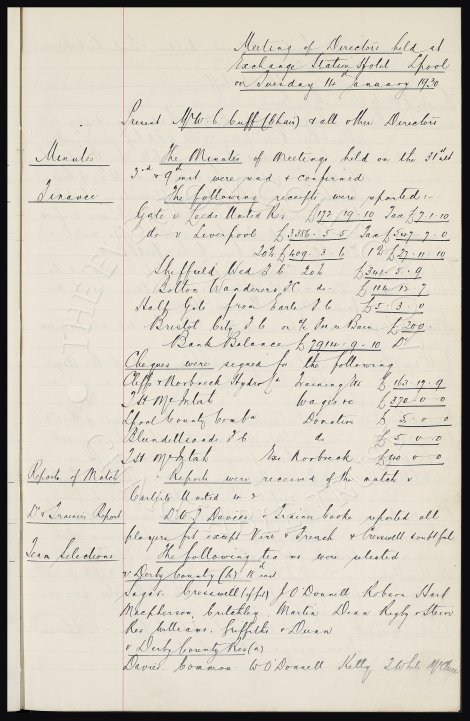 Meeting of Directors held at
Exchange Station Hotel Lpool
on Tuesday 14th January 1930
Present Mr W. C. Cuff (Chair) & all other Directors
Minutes
The Minutes of Meetings held on the 31st ult
3rd & 9th inst were read & confirmed.
Finance
The following receipts were reported:-
Gate v Leeds United Res £172-19-10 Tax £7-1-10
do v Liverpool £3356-5-5 Tax £547-7-0
20% £409-3-6 1% £27-11-10
Sheffield Wed F C 20% £341-5-9
Bolton Wanderers F C do £114-12-7
Half Gate from Earle F C £5-3-0
Bristol City F C on a/c £200
Bank Balance £7914-9-10
Cheques were signed for the following
Cliffs & Norbreck Hydro Training a/cs £163-19-9
T H McIntosh Wages &c £370-0-0
Lpool County Comb Donation £5-0-0
Blundellsands F C do £5-0-0
T H McIntosh Norbreck £40-0-0
Reports of Match
Reports were received of the match v
Carlisle United
Dr & Trainers Report
Dr W J Davies & Trainer Cooke reported all
players fit except Vere & French & Cresswell doubtful
Team Selections
The following teams were selected
v Derby County (h) 18th inst
Sagar. Cresswell (if fit) J O'Donnell Robson Hart
Macpherson Critchley Martin Dean Rigby & Stein
Res Williams. Griffiths &
v Derby County Res (a)
Davies. Common. W O'Donnell. Kelly T White McClure